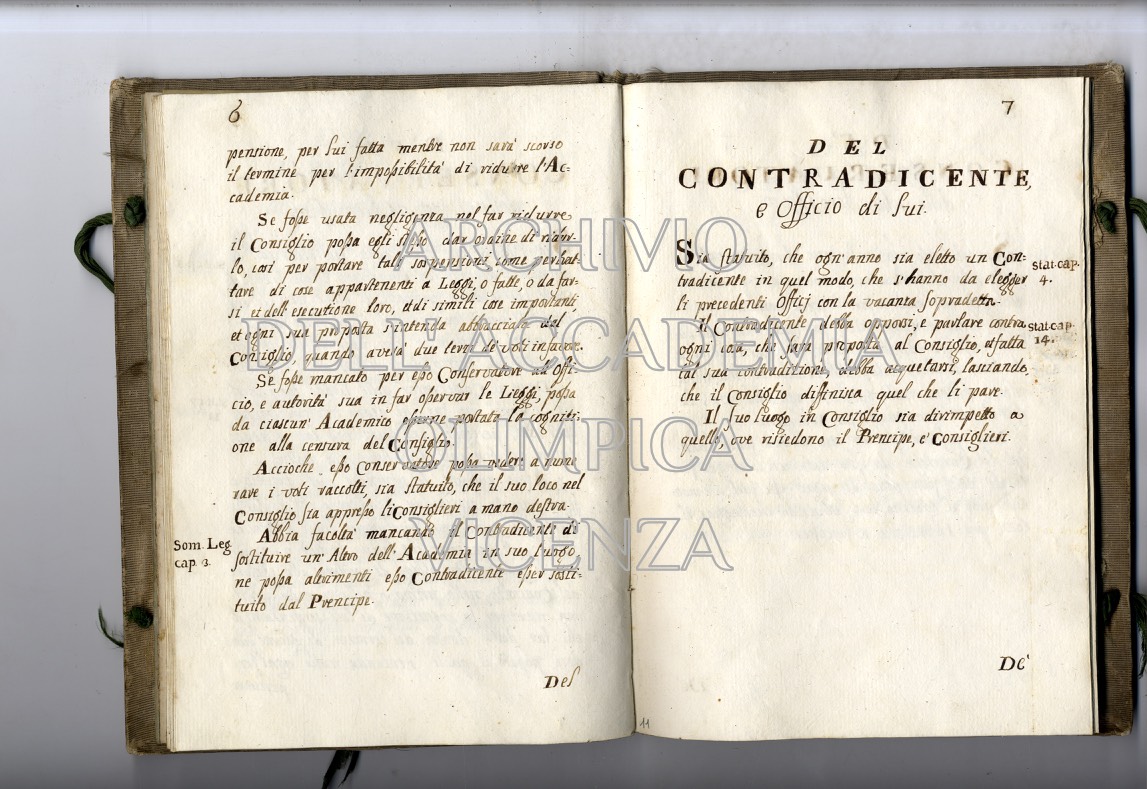 6
pensione, per lui fatta mentre non sarà scorso
il termine per l'impossibilità di ridurre l'Ac-
cademia.
Se fosse usata negligenza nel far ridurre
il Consiglio possa egli stesso dar ordine di ridur-
lo, così per portare tali sospensioni come per trat-
tare di cose appartenenti a Leggi, o fatte, o da far-
si et dell'esecutione loro, et di simili cose importanti,
et ogni sua proposta s'intenda abbracciata dal
Consiglio, quando averà due terzi de voti in favore.
Se fosse mancato per esso Conservatore all'Offi-
cio, e autorità sua in far osservar le Leggi, possa
da ciascun' Academico esserne portata la cogniti-
one alla censura del Consiglio.
Accioche esso Conservatore possa vedere a nume
rare i voti raccolti, sia statuito, che il suo loco nel
Consiglio sia appresso li Consiglieri a mano destra.
Abbia facoltà mancando il Contradicente di
sostituire un'Altro dell'Academia in suo luogo,
ne possa altrimenti esso Contradicente esser sosti-
tuito dal Prencipe.
Som. Leg.
cap. 3.
Del
7
DEL
CONTRADICENTE,
e Officio di lui.
Sia statuito, che ogn'anno sia eletto un Con-
tradicente in quel modo, che s'hanno da elegger
li precedenti Officij con la vacanza sopradetta.
Il Contradicente debba opporsi, e parlare contra
ogni cosa, che sarà proposta al Consiglio, et fatta
tal sua contraditione, debba acquetarsi, lasciando,
che il Consiglio diffinisca quel che li pare.
Il suo luogo in Consiglio sia dirimpetto a
quello, ove risiedono il Prencipe, e' Consiglieri.
stat. cap.
4.
stat. cap.
14.
De'
11
ARCHIVIO
DELL'ACCADEMIA
OLIMPICA
VICENZA